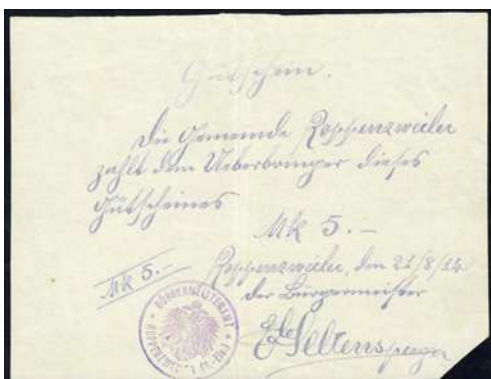 Gutschein.
Die Gemeinde Roppenzweiler
zahlt dem Ueberbringer dieses
Gutscheines
Mk 5.-
Mk 5.-
Roppenzweiler, den 21/8/14.
der Bürgermeister
BÜRGERMEISTERAMT